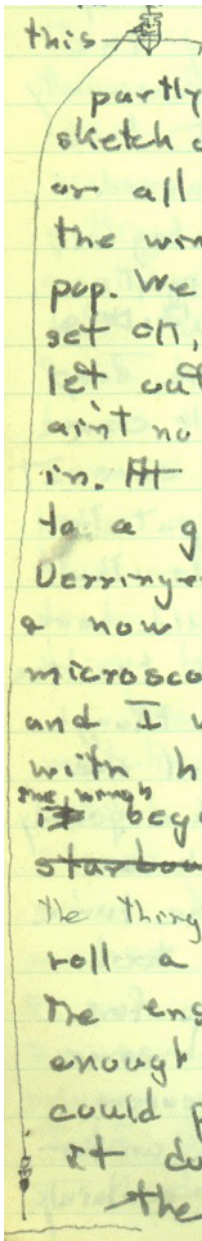 this
partly
sketch
or all
the win
pop. We
set on,
let out
ain't no
in. At
to a g
Derringe
& now
microsco
and I w
with h
the winch
it bega
starboa
the thing
roll a
the eng
enough
could p
it du
the